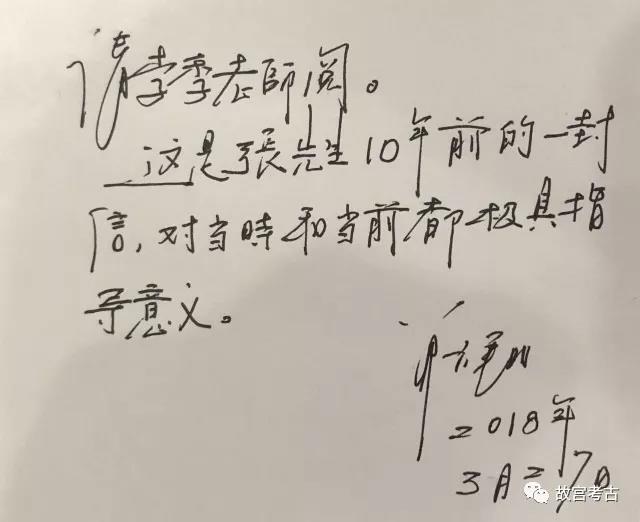 请李季老師阅。
这是張先生10年前的一封
信,对当時和当前都极具指
导意义。
2018年
3月27日
故宫考古